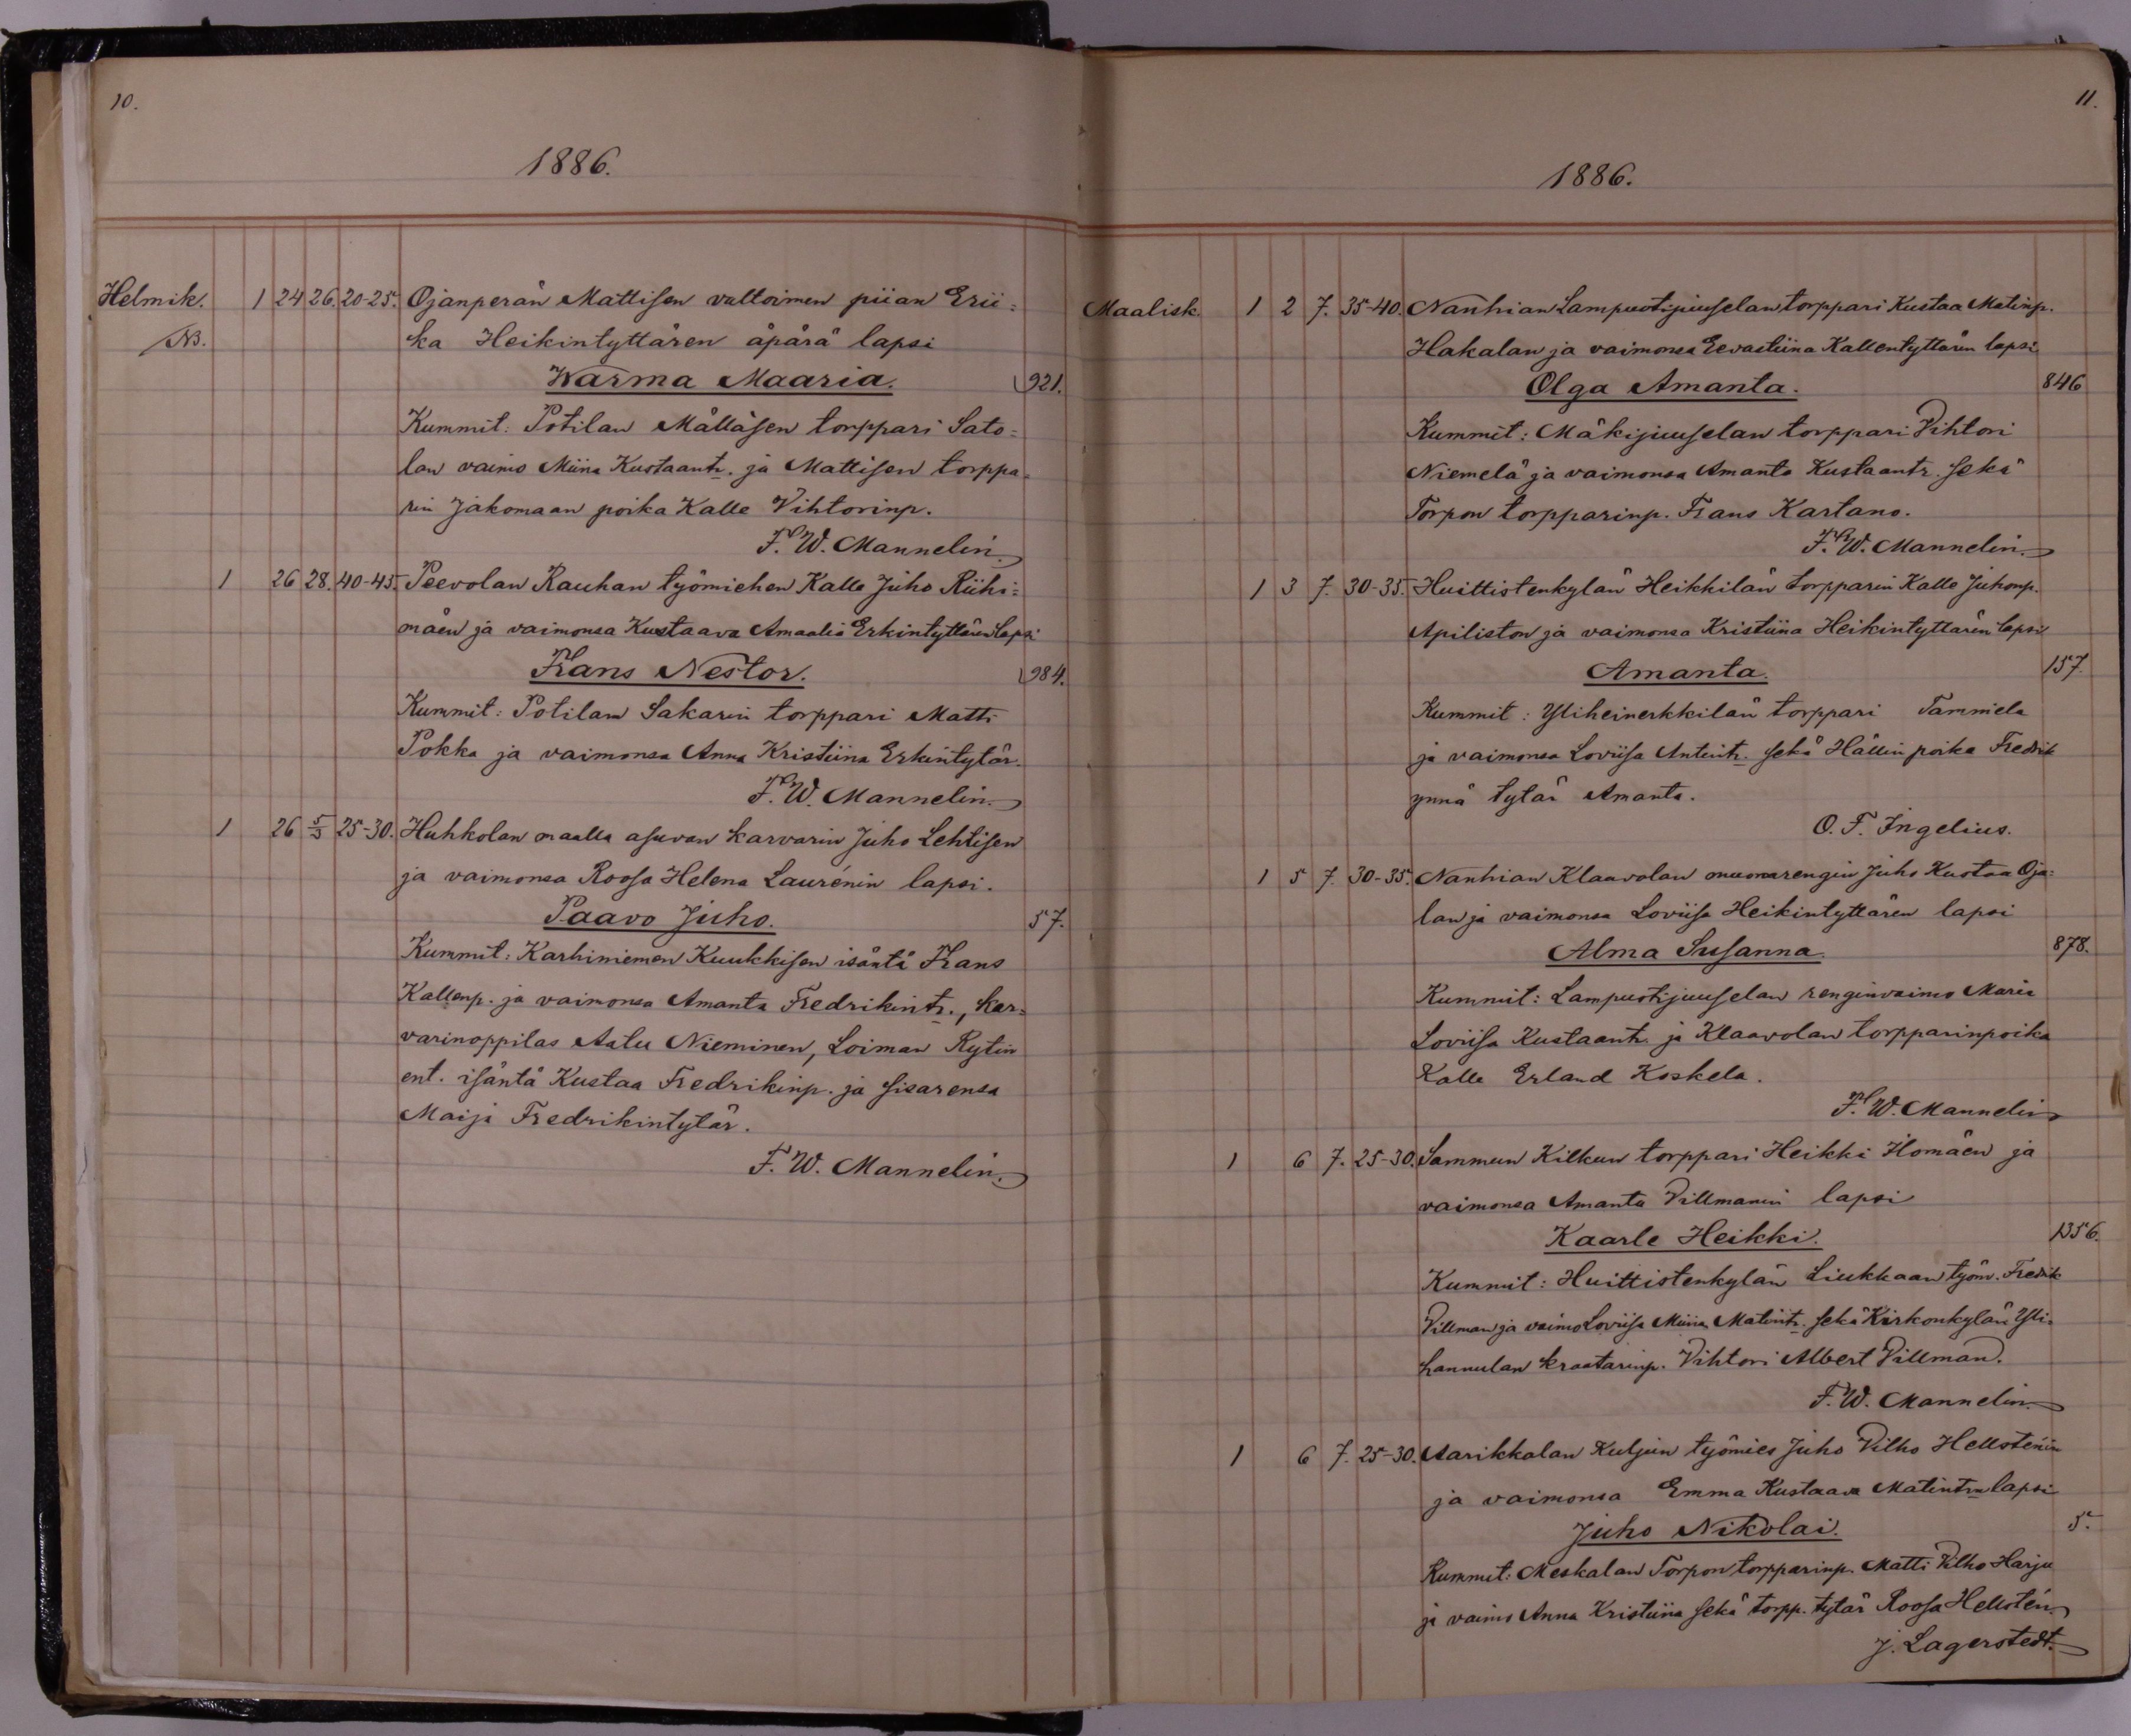 10.
1886.
Helmik. 1 24 26. 20-25. Ojanperän Mattisen valtoimen piian Erii=
NB. ka Heikintyttären äpärä lapsi
Warma Maaria. 921.
Kummit: Potilan Mälläsen torppari Sato=
lan vaimo Miina Kustaantr. ja Mattisen torppa=
rin Jakomaan poika Kalle Vihtorinp.
F. W. Mannelin.
1 26 28. 40-45. Peevolan Rauhan työmiehen Kalle Juho Riihi=
mäen ja vaimonsa Kustaava Amaalia Erkintyttären lapsi
Frans Nestor. 984.
Kummit: Potilan Sakarin torppari Matti
Pokka ja vaimonsa Anna Kristiina Erkintytär.
F. W. Mannelin.
1 26 5/3 25-30. Huhkolan maalla asuvan karvarin Juho Lehtisen
ja vaimonsa Roosa Helena Laurénin lapsi.
Paavo Juho. 57.
Kummit: Karhiniemen Kuukkisen isäntä Frans
Kallenp. ja vaimonsa Amanta Fredrikintr., kar=
varinoppilas Aatu Nieminen, Loiman Rytin
ent. isäntä Kustaa Fredrikinp. ja sisarensa
Maija Fredrikintytär.
F. W. Mannelin.
11.
1886.
Maalisk. 1 2 7. 35-40. Nanhian Lampuotijuuselan torppari Kustaa Matinp.
Hakalan ja vaimonsa Eevastiina Kallentyttären lapsi
Olga Amanta. 846
Kummit: Mäkijuuselan torppari Vihtori
Niemelä ja vaimonsa Amanta Kustaantr. sekä
Torpon torpparinp. Frans Kartano.
F. W. Mannelin.
1 3 7. 30-35. Huittistenkylän Heikkilän torpparin Kalle Juhonp.
Apiliston ja vaimonsa Kristiina Heikintyttären lapsi
Amanta. 157.
Kummit: Yliheinerkkilän torppari Tammela
ja vaimonsa Loviisa Antintr. sekä Hällin poika Fredrik
ynnä tytär Amanta.
O. F. Ingelius.
1 5 7. 30-35. Nanhian Klaavolan muonarengin Juho Kustaa Oja=
lan ja vaimonsa Loviisa Heikintyttären lapsi
Alma Susanna. 878.
Kummit: Lampuotijuuselan renginvaimo Maria
Loviisa Kustaantr. ja Klaavolan torpparinpoika
Kalle Erland Koskela.
F. W. Mannelin
1 6 7. 25-30. Sammun Kilkun torppari Heikki Ilomäen ja
vaimonsa Amanta Villmanin lapsi
Kaarle Heikki. 1356.
Kummit: Huittistenkylän Liukkaan työm. Fredik
Villman ja vaimo Loviisa Miina Matintr. sekä Kirkonkylän Yli=
hannulan kraatarinp. Vihtori Albert Villman.
F. W. Mannelin.
1 6 7. 25-30. Aarikkalan Kuljun työmies Juho Vilho Hellsténin
ja vaimonsa Emma Kustaava Matintrn lapsi
Juho Nikolai. 5.
Kummit: Meskalan Torpon torpparinp. Matti Vilho Harju
ja vaimo Anna Kristiina sekä torpp. tytär Roosa Hellstén.
J. Lagerstedt.